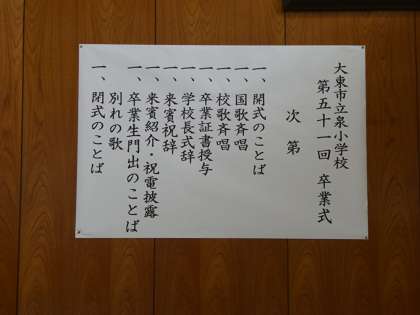 大東市立泉小学校
第五十一回 卒業式
次第
一、開式のことば
一、国歌斉唱
一、校歌斉唱
一、卒業証書授与
一、学校長式辞
一、来賓祝辞
一、来賓紹介・祝電披露
一、卒業生門出のことば
別れの歌
一、閉式のことば